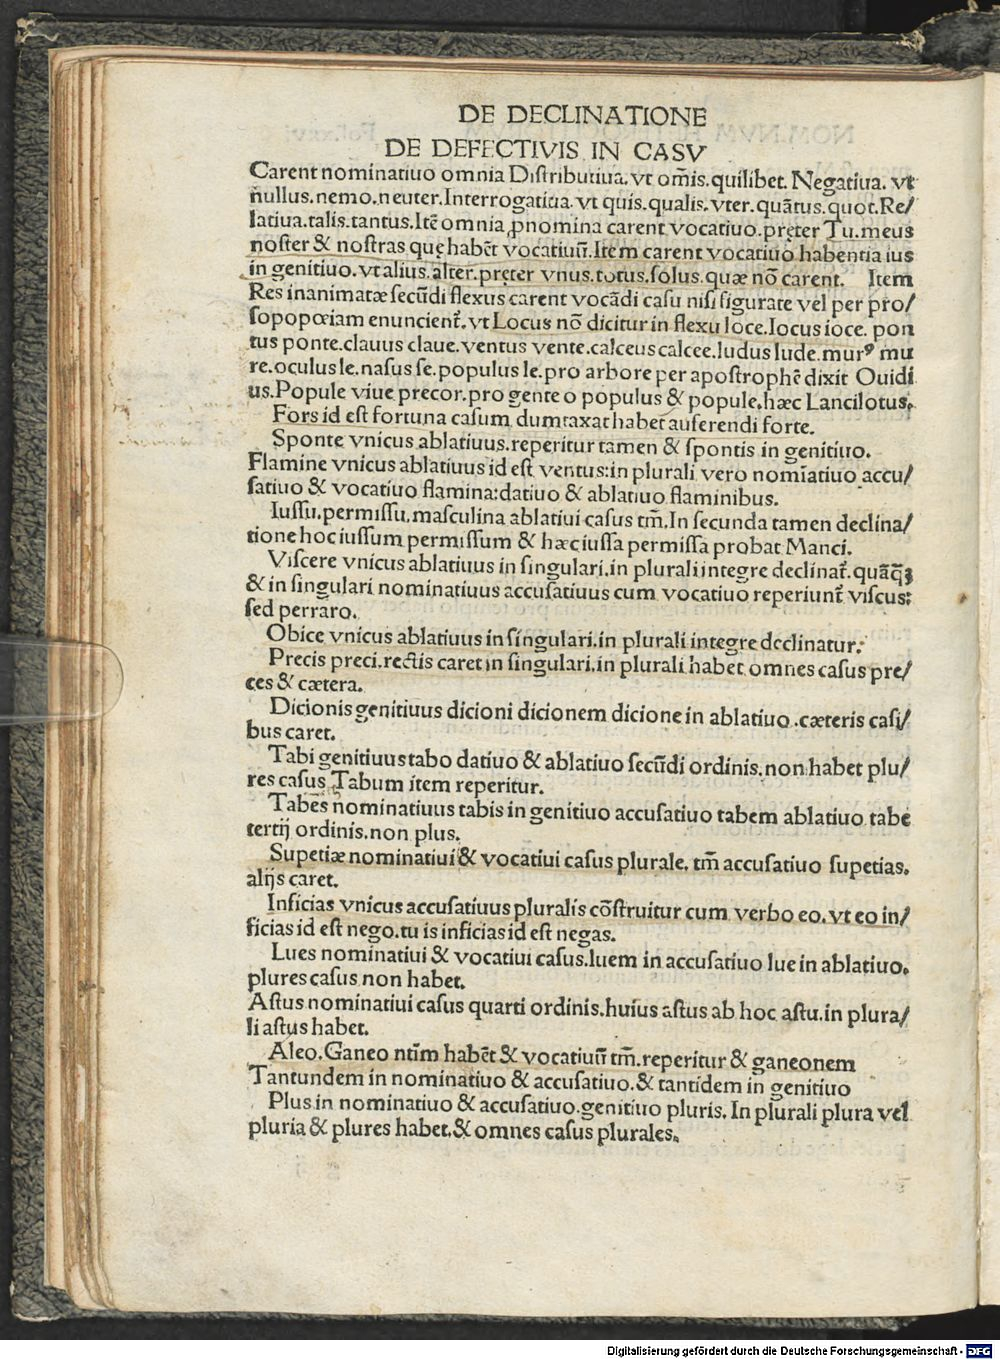 DE DECLINATIONE
DE DEFECTIVIS IN CASV
Carent nominatiuo omnia Distributiua. vt om̄is. quilibet. Negatiua. vt
nullus. nemo. neuter. Interrogatiua. vt quis. qualis. vter. quātus. quot. Re/
latiua. talis. tantus. Itē omnia ꝓnomina carent vocatiuo. pręter Tu. meus
noster & nostras quę habēt vocatiuū. Item carent vocatiuo habentia ius
in genitiuo. vt alius. alter. pręter vnus. totus. solus. quæ nō carent. Item
Res inanimatæ secūdi flexus carent vocādi casu nisi figurate vel per pro/
sopopœiam enuncient̄. vt Locus nō dicitur in flexu loce. Iocus ioce. pon
tus ponte. clauus claue. ventus vente. calceus calcee. ludus lude. murꝰ mu
re. oculus le. nasus se. populus le. pro arbore per apostrophē dixit Ouidi
us. Popule viue precor. pro gente o populus & popule. hæc Lancilotus.
Fors id est fortuna casum dumtaxat habet auferendi forte.
Sponte vnicus ablatiuus. reperitur tamen & spontis in genitiuo.
Flamine vnicus ablatiuus id est ventus: in plurali vero nomīatiuo accu/
satiuo & vocatiuo flamina: datiuo & ablatiuo flaminibus.
Iussu. permissu. masculina ablatiui casus tm̄. In secunda tamen declina/
tione hoc iussum permissum & hæc iussa permissa probat Manci.
Viscere vnicus ablatiuus in singulari. in plurali integre declinat̄. quāq̄ꝫ
& in singulari nominatiuus accusatiuus cum vocatiuo reperiunt̄ viscus:
sed perraro.
Obice vnicus ablatiuus in singulari. in plurali integre declinatur.
Precis preci. rectis caret in singulari. in plurali habet omnes casus pre/
ces & cætera.
Dicionis genitiuus dicioni dicionem dicione in ablatiuo. cæteris casi/
bus caret.
Tabi genitiuus tabo datiuo & ablatiuo secūdi ordinis. non habet plu/
res casus Tabum item reperitur.
Tabes nominatiuus tabis in genitiuo accusatiuo tabem ablatiuo tabe
tertij ordinis. non plus.
Supetiæ nominatiui & vocatiui casus plurale. tm̄ accusatiuo supetias.
alijs caret.
Inficias vnicus accusatiuus pluralis cōstruitur cum verbo eo. vt eo in/
ficias id est nego. tu is inficias id est negas.
Lues nominatiui & vocatiui casus. luem in accusatiuo lue in ablatiuo.
plures casus non habet.
Astus nominatiui casus quarti ordinis. huius astus ab hoc astu. in plura/
li astus habet.
Aleo. Ganeo ntīm habēt & vocatiuū tm̄. reperitur & ganeonem
Tantundem in nominatiuo & accusatiuo. & tantidem in genitiuo
Plus in nominatiuo & accusatiuo. genitiuo pluris. In plurali plura vel
pluria & plures habet. & omnes casus plurales.
Digitalisierung gefördert durch die Deutsche Forschungsgemeinschaft - DFG